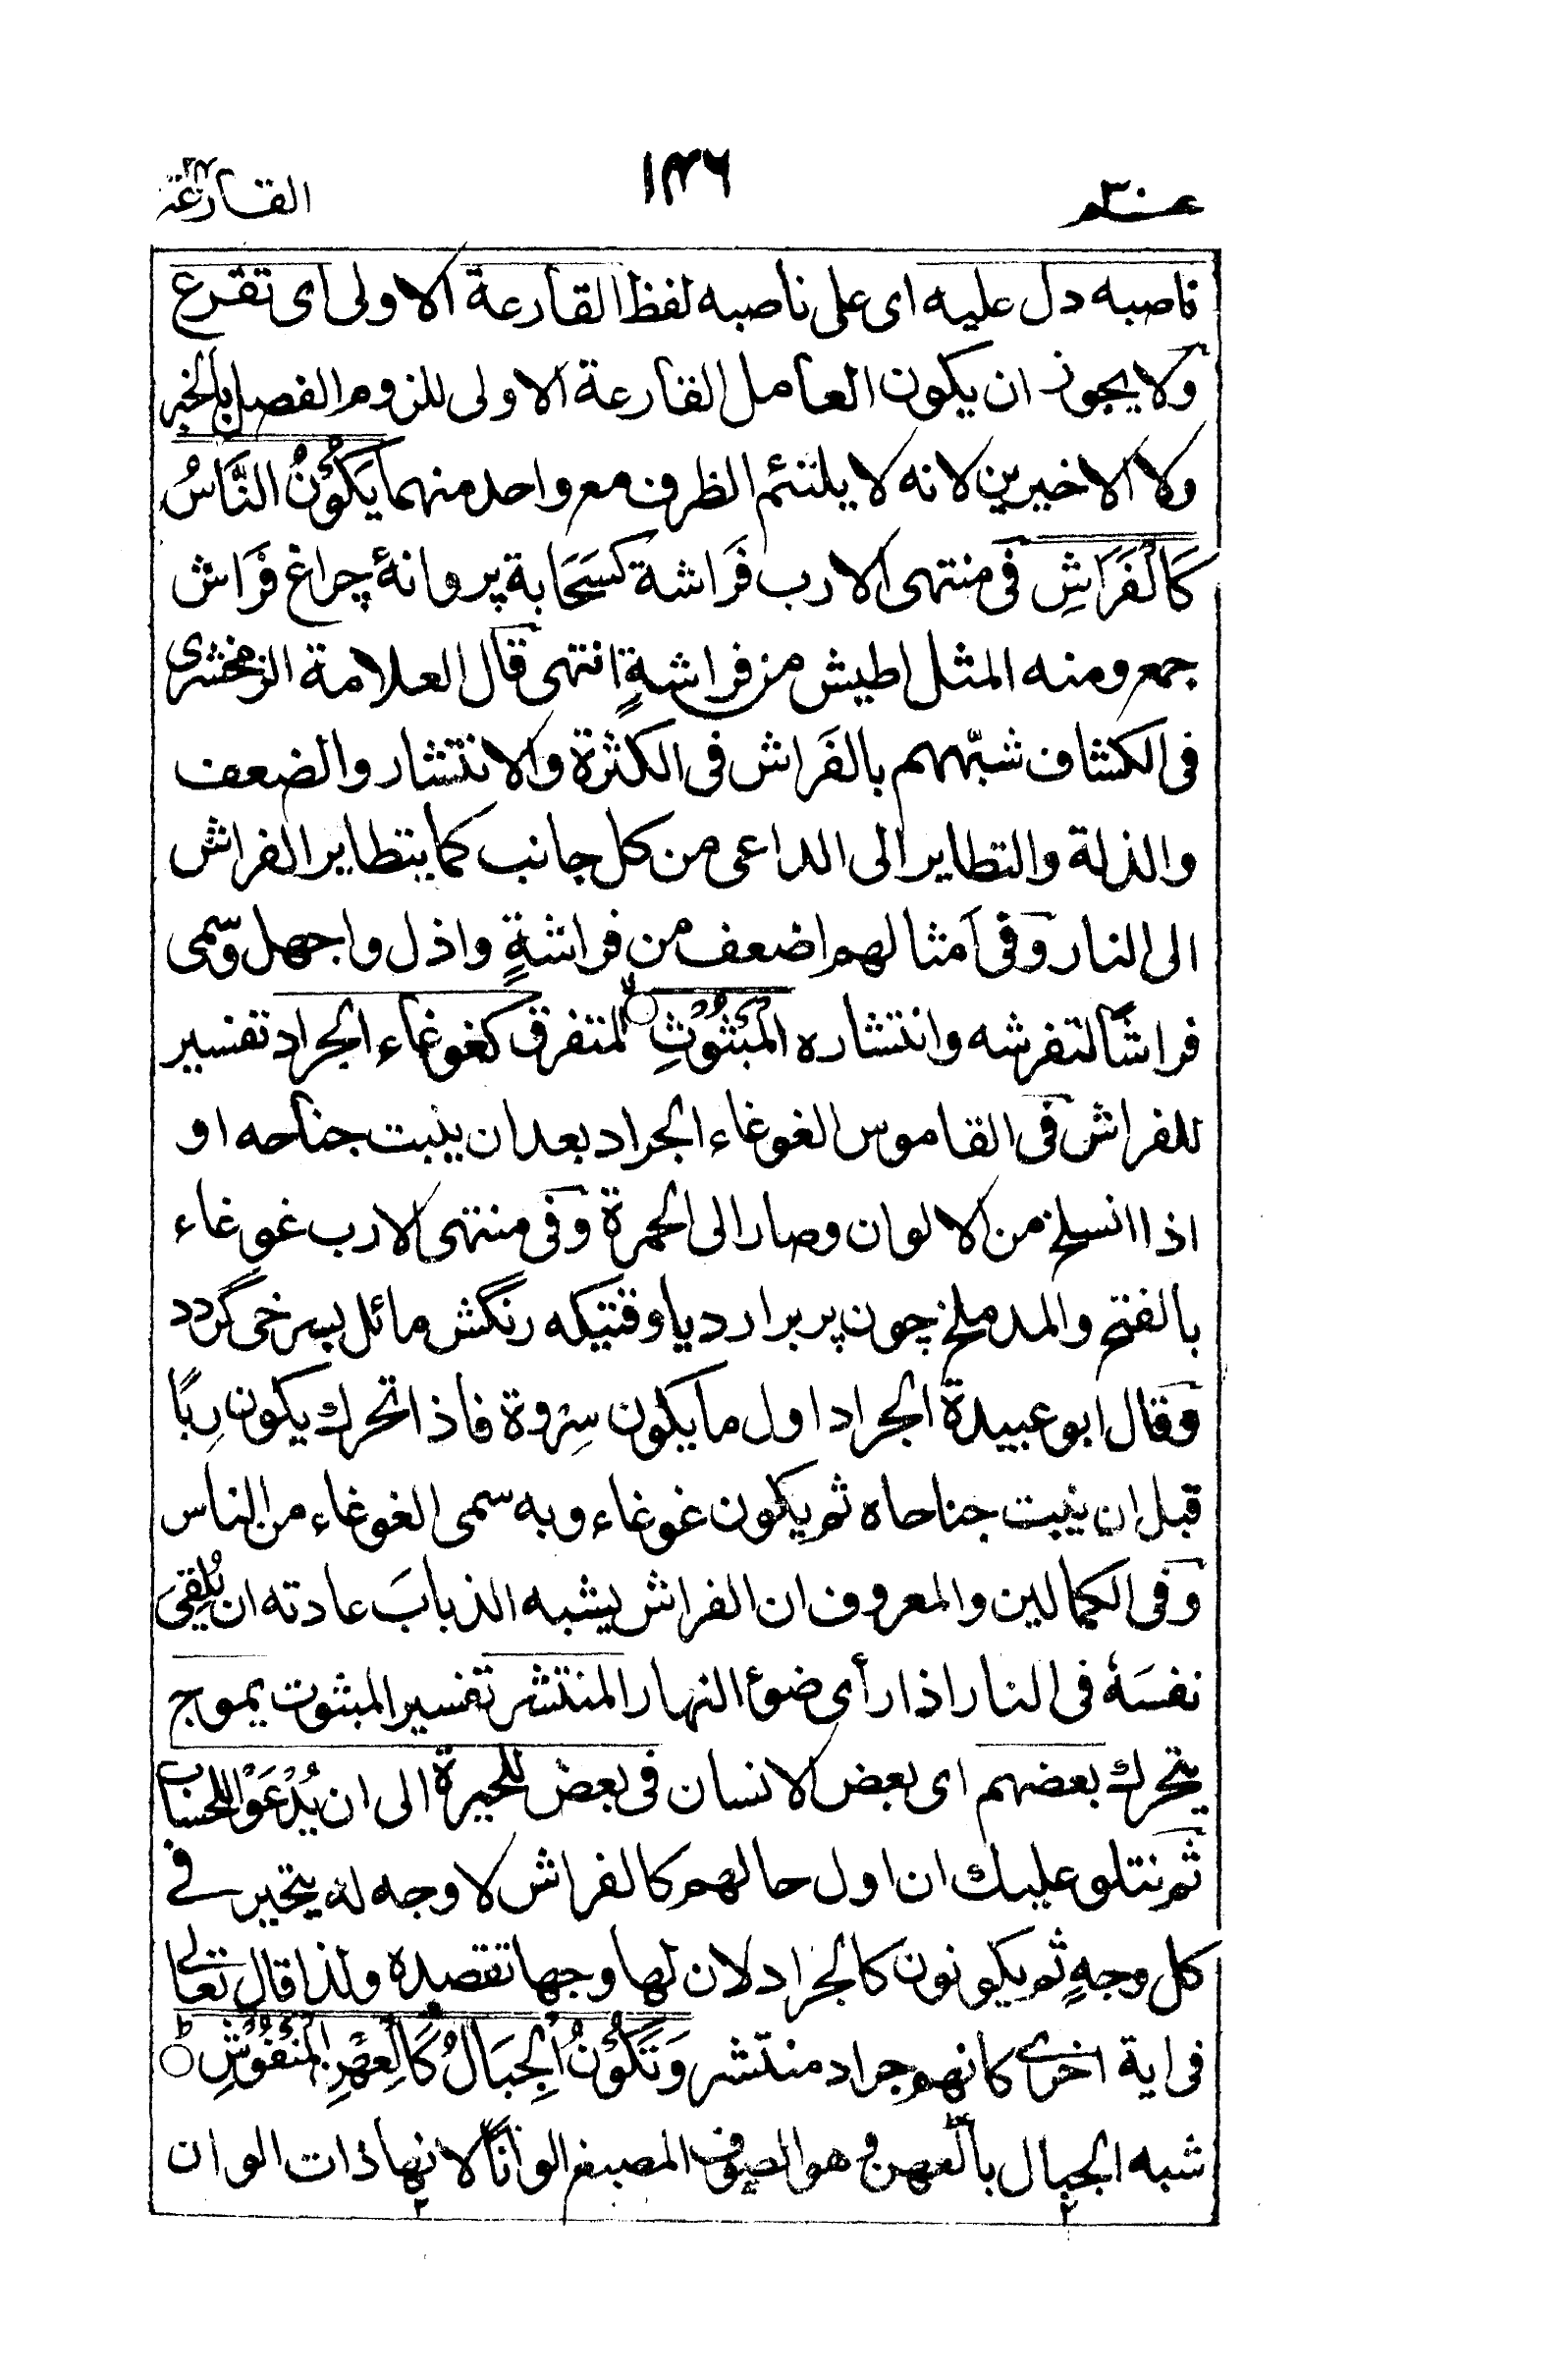 عم ٣٠
١٣٦
القارعة
ناصبه دل عليه اى على ناصبه لفظ القارعة الاولى اى تقرع
ولا يجوز ان يكون العامل القارعة الاولى للزوم الفصل بالخبر
ولا الاخيرين لانه لا يلتئم الظرف مع واحد منهما يَكُوْنُ النَّاسُ
كَالْفَرَاشِ فى منتهى الارب فَراشة كسَحَابة پروانۀ چراغ فَرَاش
جمع ومنه المثل اطيش من فراشةٍ انتهى قال العلامة الزمخشرى
فى الكشاف شبّههم بالفَراش فى الكثرة والانتشار والضعف
والذلة والتطاير الى الداعى من كل جانب كما يتطاير الفراش
الى النار وفى امثالهم اضعف من فراشةٍ واذل واجهل وسمى
فراشًا لتفرشه وانتشاره الْمَبْثُوْثِ ۙ المتفرق كغوغاء الجراد تفسير
للفراش فى القاموس الغوغاء الجراد بعد ان ينبت جناحه او
اذا انسلخ من الالوان وصار الى الحمرة وفى منتهى الارب غوغاء
بالفتح والمد ملخ چون پر برارد يا وقتيكه رنگش مائل بسرخى گردد
وقال ابو عبيدة الجراد اول ما يكون سِرْوة فاذا تحرك يكون رِبًا
قبل ان ينبت جناحاه ثم يكون غوغاء وبه سمى الغوغاء من الناس
وفى الكمالين والمعروف ان الفراش يشبه الذبابَ عادته ان يُلقِىَ
نفسَهٗ فى النار اذا رأى ضوء النهار المنتشر تفسير المبثوث يموج
يتحرك بعضهم اى بعض الانسان فى بعض للحيرة الى ان يُدْعَوْا للحساب
ثم نتلو عليك ان اول حالهم كالفراش لا وجه له يتحير فى
كل وجهٍ ثم يكونون كالجراد لان لها وجها تقصده ولذا قال تعالى
فى اية اخرى كانهم جراد منتشر وَتَكُوْنُ الْجِبَالُ كَالْعِهْنِ الْمَنْفُوْشِ ؕ
شبه الجبال بالعهن وهو الصوف المصبغ الوانًا لانها ذات الوان